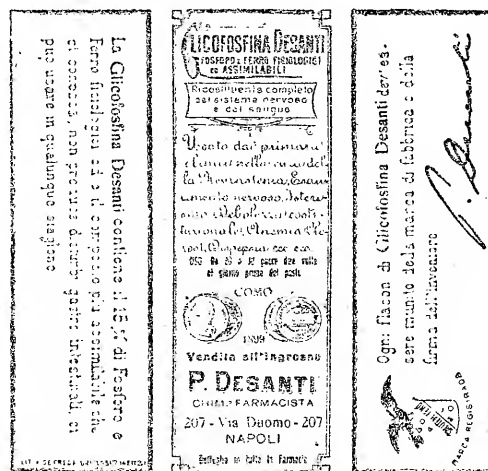 La Glicofosfina Desanti contiene il 15 % di Fosforo e
Ferro fisiologici ed è il composto più assimilabile che
si conosca, non produce disturbi gastro intestinali, si
può usare in qualunque stagione
GLICOFOSFINA DESANTI
FOSFORO e FERRO FISIOLOGICI
ed ASSIMILABILI
Ricostituente completo
del sistema nervoso
e del sangue
Usato dai primari
clinici nella cura del-
la Nevrastenia, Esauri-
mento nervoso, Istero
Debolezza costi-
tuzionale, Anemia
ecc. ecc.
due volte
al giorno prima dei pasti
COMO
1899
Vendita all'ingrosso
P. DESANTI
CHIM. FARMACISTA
207 - Via Duomo - 207
NAPOLI
Dettaglio in tutte le Farmacie
Ogni flacon di Glicofosfina Desanti dev'es-
sere munito della marca di fabbrica e della
firma dell'inventore
P. Desanti
MARCA REGISTRATA